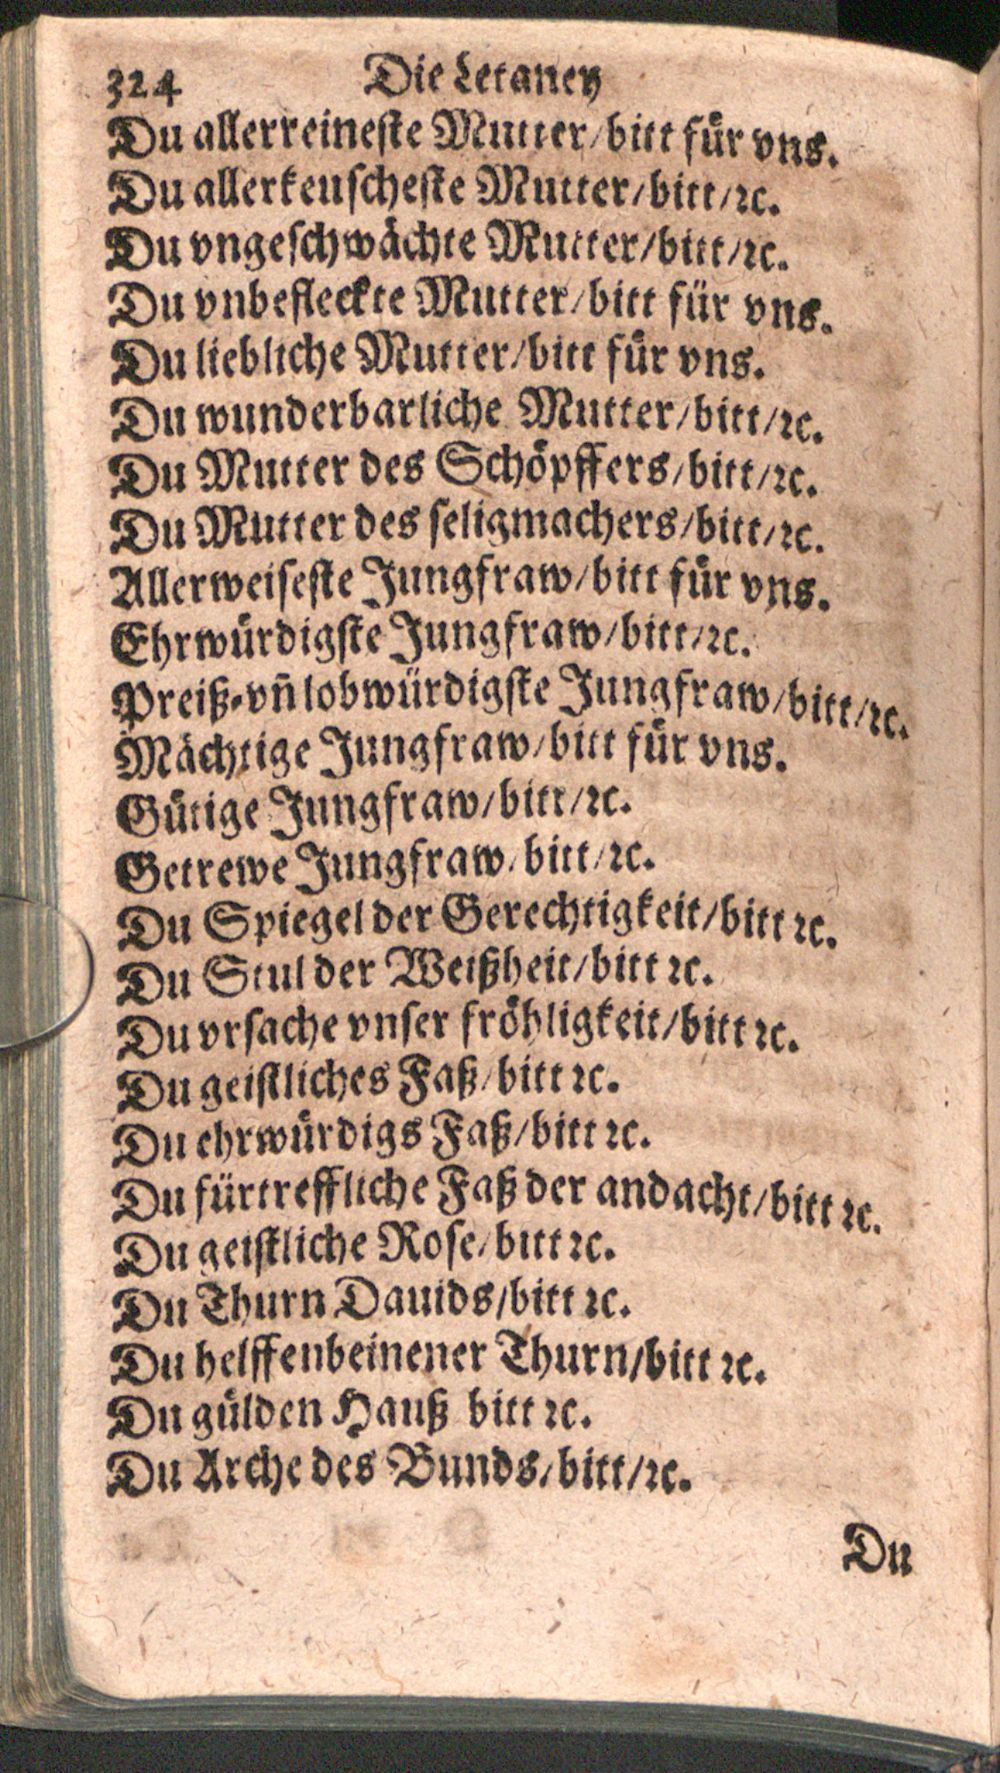 324 Die Letaney
Du allerreineste Mutter/bitt für vns.
Du allerkeuscheste Mutter/bitt/ꝛc.
Du vngeschwächte Mutter/bitt/ꝛc.
Du vnbefleckte Mutter/bitt für vns.
Du liebliche Mutter/bitt für vns.
Du wunderbarliche Mutter/bitt/ꝛc.
Du Mutter des Schöpffers/bitt/ꝛc.
Du Mutter des seligmachers/bitt/ꝛc.
Allerweiseste Jungfraw/bitt für vns.
Ehrwürdigste Jungfraw/bitt/ꝛc.
Preiß-vn̄ lobwürdigste Jungfraw/bitt/ꝛc.
Mächtige Jungfraw/bitt für vns.
Gütige Jungfraw/bitt/ꝛc.
Getrewe Jungfraw/bitt/ꝛc.
Du Spiegel der Gerechtigkeit/bitt ꝛc.
Du Stul der Weißheit/bitt ꝛc.
Du vrsache vnser fröhligkeit/bitt ꝛc.
Du geistliches Faß/bitt ꝛc.
Du ehrwürdigs Faß/bitt ꝛc.
Du fürtreffliche Faß der andacht/bitt ꝛc.
Du geistliche Rose/bitt ꝛc.
Du Thurn Dauids/bitt ꝛc.
Du helffenbeinener Thurn/bitt ꝛc.
Du gülden Hauß bitt ꝛc.
Du Arche des Bunds/bitt/ꝛc.
Du